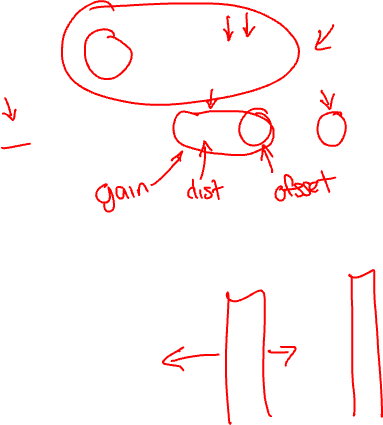 gain dist ofsset